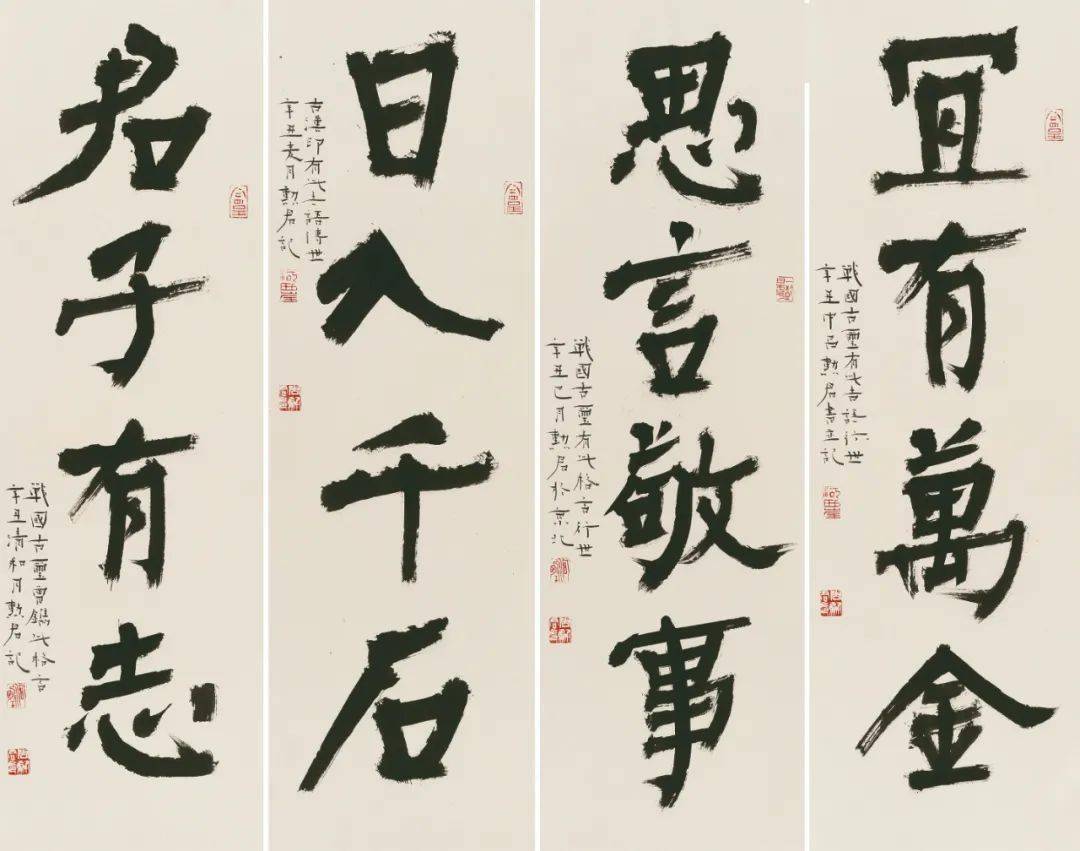 冝有萬金
戰國古璽有此吉語行世
辛丑中呂勳君書並記
思言敬事
戰國古璽有此格言行世
辛丑巳月勳君於京北
日入千石
古漢印有此吉語傳世
辛丑麦月勳君記
君子有志
戰國古璽曾鐫此格言
辛丑清和月勳君記